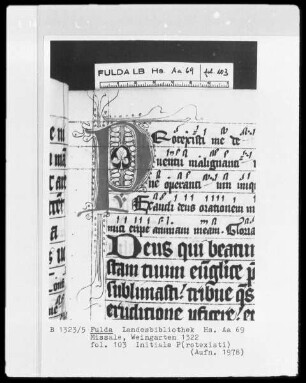 FULDA LB Hs. Aa 69 fol 103
Protexisti me de
uentu malignanci
ne operanti um iniqui
Exaudi deus orationem m
mici eripe animam meam. Gloria
Deus qui beatum
stam tuum eungelice p
sublimasti tribue qs
eruditione uficere. et
B 1323/5 Fulda Landesbibliothek Hs. Aa 69
Missale, Weingarten 1322
fol. 103 Initiale P(rotexisti)
(Aufn. 1978)